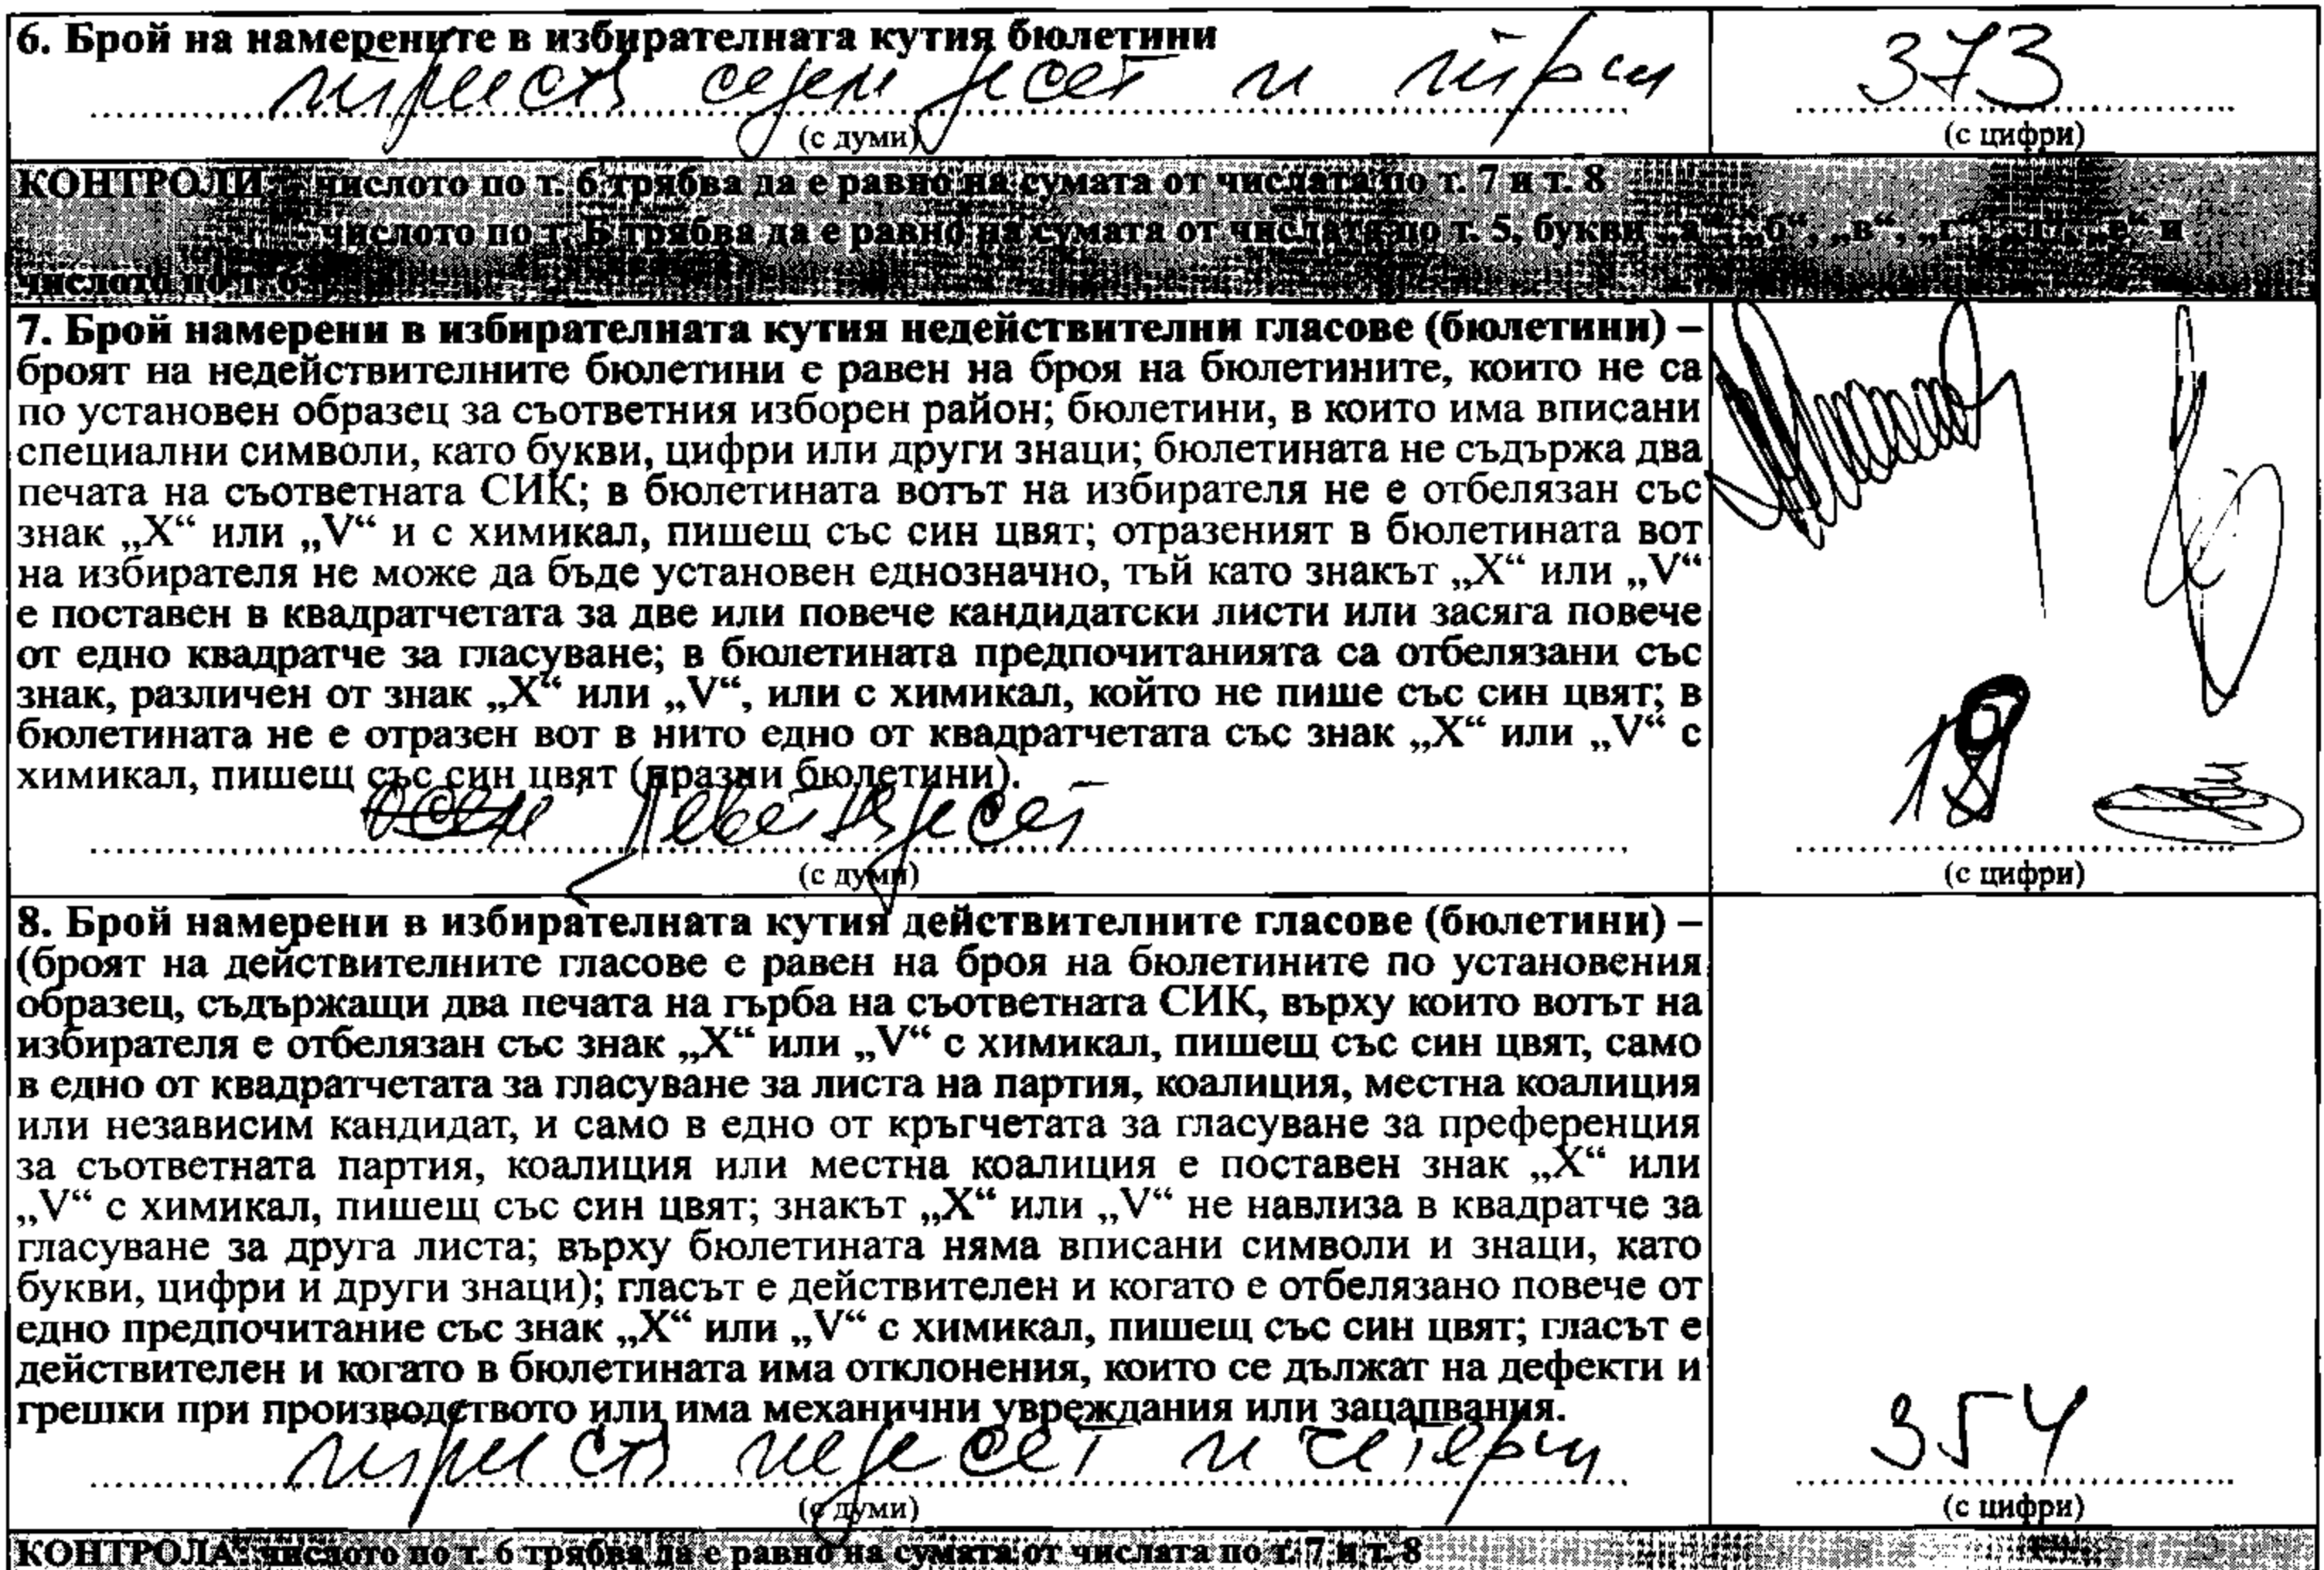 6. Брой на намерените в избирателната кутия бюлетини
триста седемдесет и три
373
(с думи)
(с цифри)
КОНТРОЛИ: числото по т. 6 трябва да е равно на сумата от числата по т. 7 и т. 8
– числото по т. Б трябва да е равно на сумата от числата по т. 5, букви „а“, „б“, „в“, „г“, „д“, „е“ и
числото по т. 6
7. Брой намерени в избирателната кутия недействителни гласове (бюлетини) –
броят на недействителните бюлетини е равен на броя на бюлетините, които не са
по установен образец за съответния изборен район; бюлетини, в които има вписани
специални символи, като букви, цифри или други знаци; бюлетината не съдържа два
печата на съответната СИК; в бюлетината вотът на избирателя не е отбелязан със
знак „X“ или „V“ и с химикал, пишещ със син цвят; отразеният в бюлетината вот
на избирателя не може да бъде установен еднозначно, тъй като знакът „X“ или „V“
е поставен в квадратчетата за две или повече кандидатски листи или засяга повече
от едно квадратче за гласуване; в бюлетината предпочитанията са отбелязани със
знак, различен от знак „X“ или „V“, или с химикал, който не пише със син цвят; в
бюлетината не е отразен вот в нито едно от квадратчетата със знак „X“ или „V“ с
химикал, пишещ със син цвят (празни бюлетини).
осем деветнадесет
19
(с думи)
(с цифри)
8. Брой намерени в избирателната кутия действителните гласове (бюлетини) –
(броят на действителните гласове е равен на броя на бюлетините по установения
образец, съдържащи два печата на гърба на съответната СИК, върху които вотът на
избирателя е отбелязан със знак „X“ или „V“ с химикал, пишещ със син цвят, само
в едно от квадратчетата за гласуване за листа на партия, коалиция, местна коалиция
или независим кандидат, и само в едно от кръгчетата за гласуване за преференция
за съответната партия, коалиция или местна коалиция е поставен знак „X“ или
„V“ с химикал, пишещ със син цвят; знакът „X“ или „V“ не навлиза в квадратче за
гласуване за друга листа; върху бюлетината няма вписани символи и знаци, като
букви, цифри и други знаци); гласът е действителен и когато е отбелязано повече от
едно предпочитание със знак „X“ или „V“ с химикал, пишещ със син цвят; гласът е
действителен и когато в бюлетината има отклонения, които се дължат на дефекти и
грешки при производството или има механични увреждания или зацапвания.
триста педесет и четери
354
(с думи)
(с цифри)
КОНТРОЛА: числото по т. 6 трябва да е равно на сумата от числата по т. 7 и т. 8